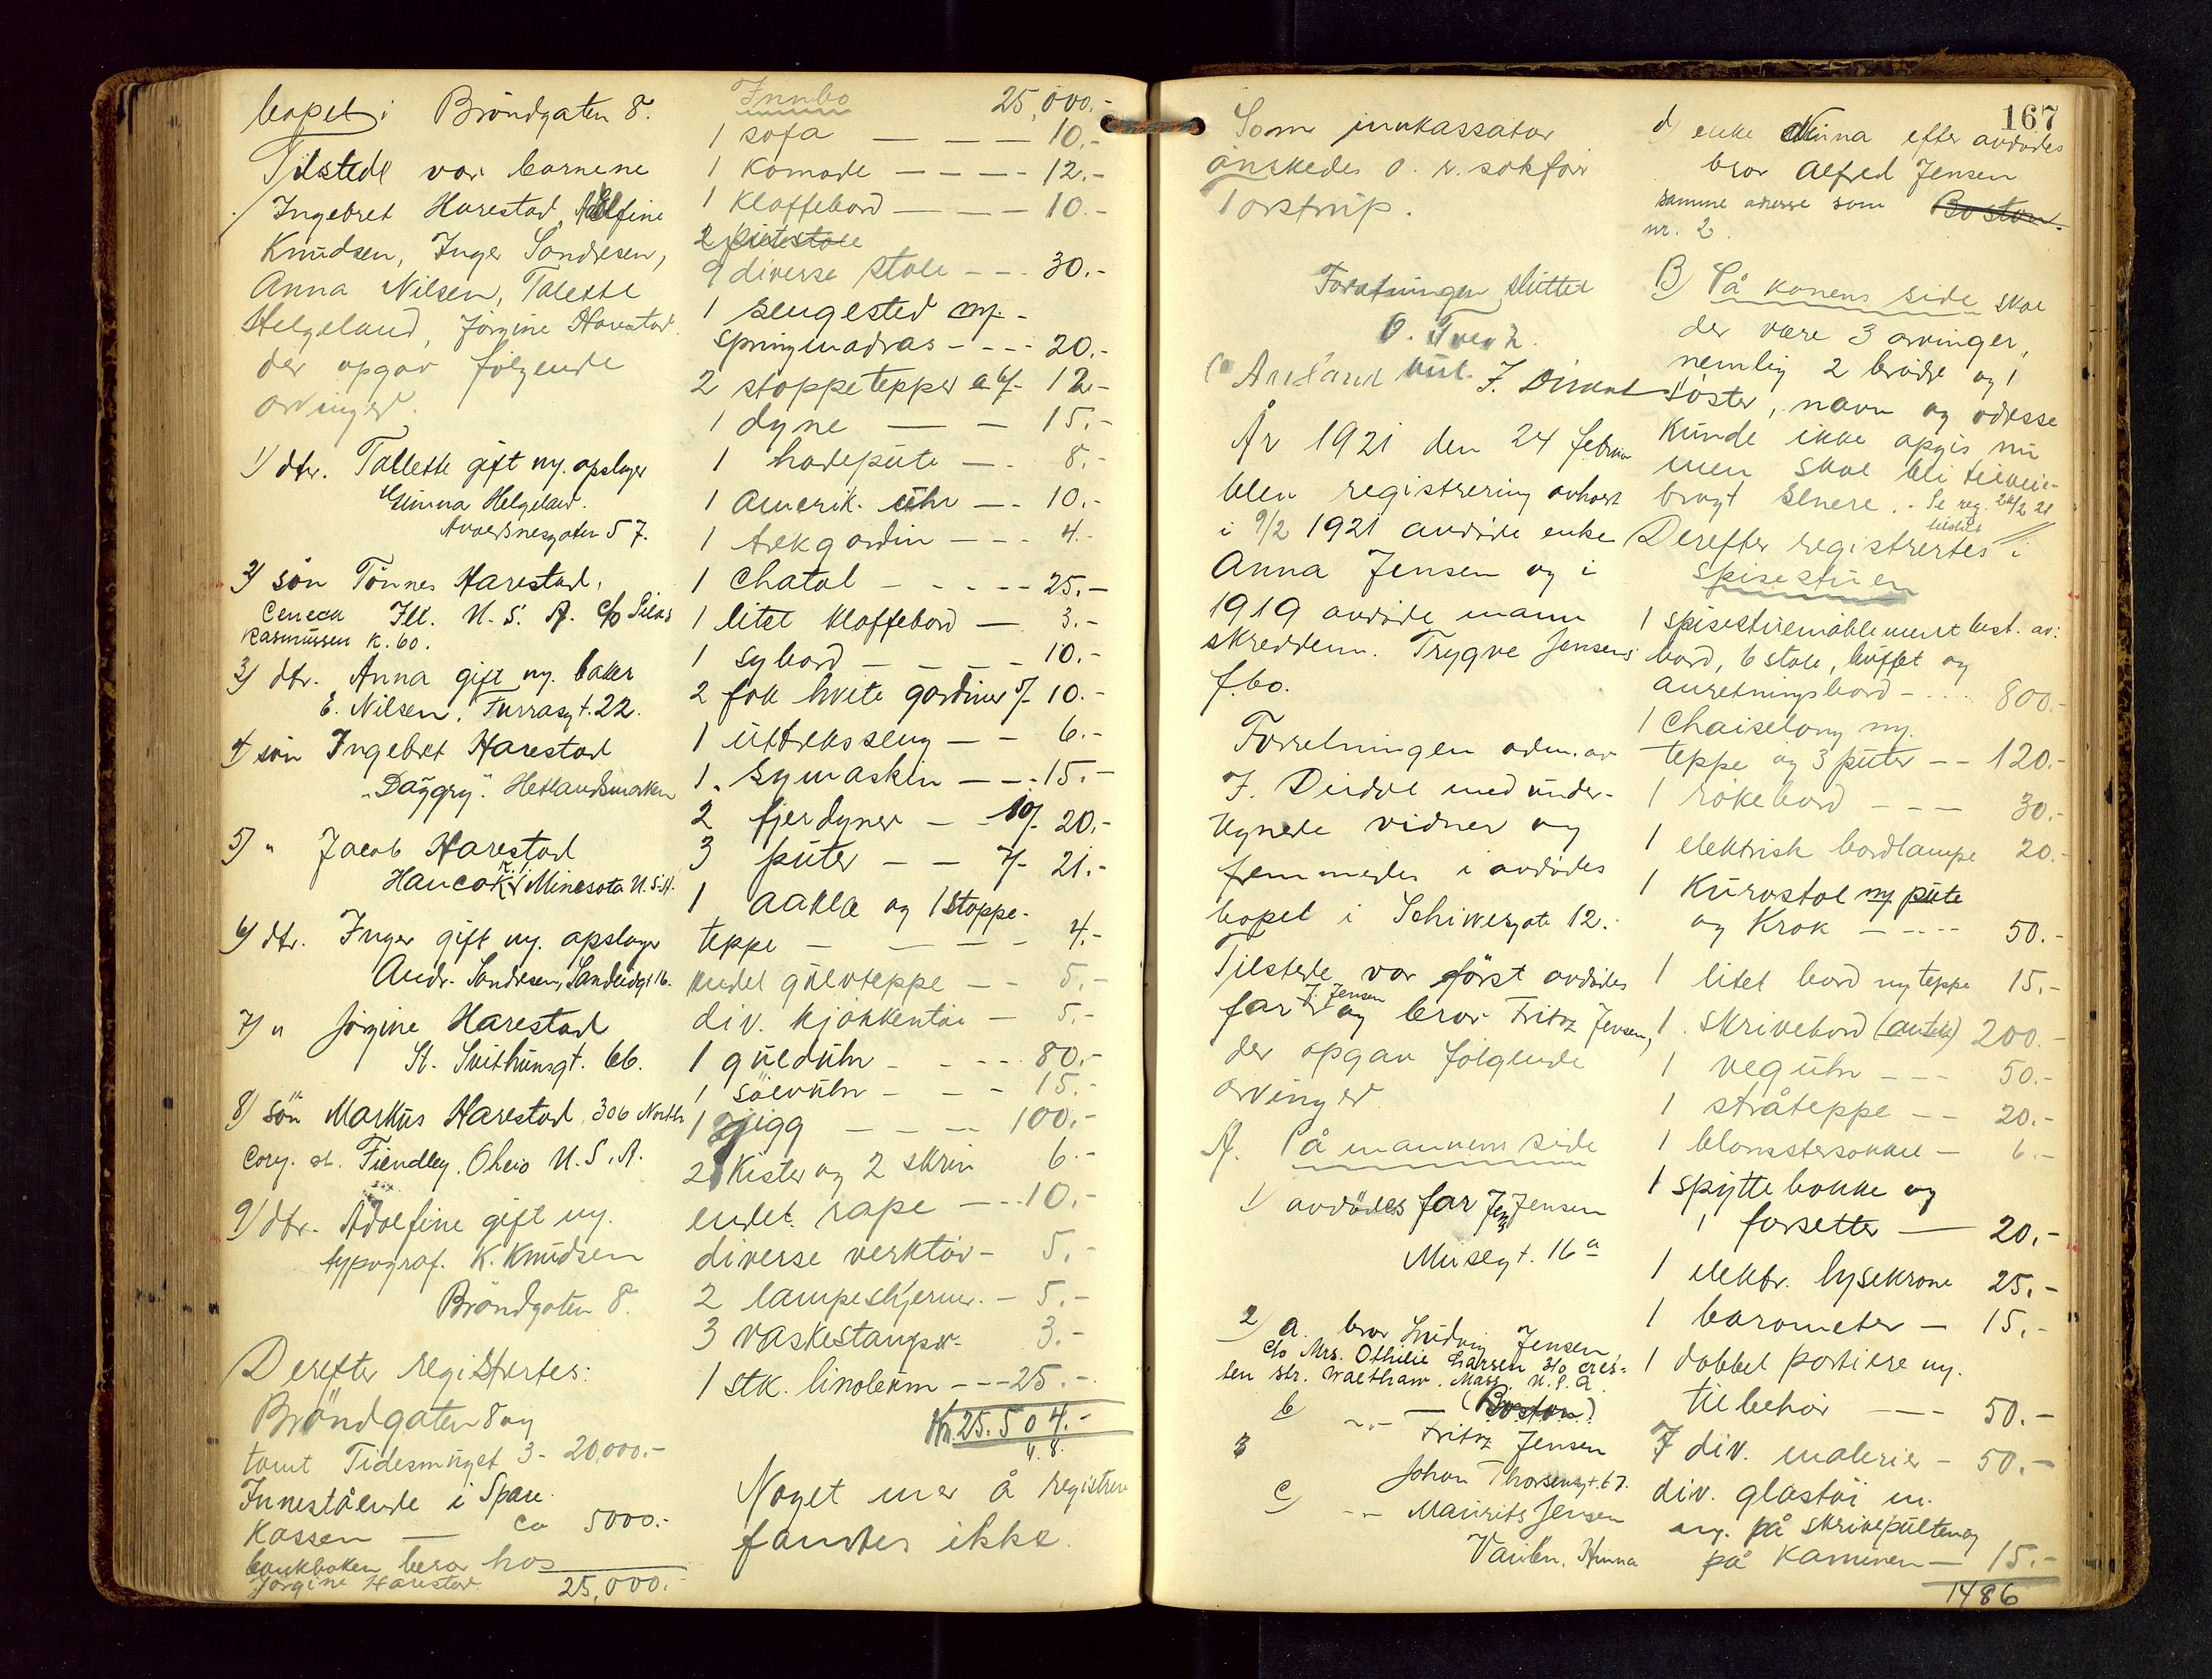 bopel i Bröndgaten 8.
Tilstede var barnene
Ingebret Harestad, Adolfine
Knudsen, Inger Sondresen,
Anna Nilsen, Talette
Helgeland, Jörgine Harestad
der opgav fölgende
arvinger.
1) dtr. Tallette gift m. opslager
Gunna Helgeland.
57.
2) sön Tönnes Harestad,
Ceneca Ill. U.S.A. c/o Silas
Rasmussen R. 60.
3) dtr. Anna gift m. baker
E. Nilsen, Turrasgt. 22.
4) sön Ingebret Harestad
"Daggry" Hetlandsmarken
5) " Jacob Harestad
Hancok Minesota U.S.A.
6) dtr. Inger gift m. opslager
Andr. Sondresen, Sandeidgt 16.
7) " Jörgine Harestad
St. Svithunsgt. 66.
8) sön Markus Harestad, 306 North
Cory. st. Fiendley. Oheio U.S.A.
9) dtr. Adolfine gift m.
typograf. K. Knudsen
Bröndgaten 8.
Derefter registrertes:
Bröndgaten 8 og
tomt Tidesmuget 3 - 20,000.-
Innestående i Spare-
kassen — ca 5000.-
bankboken beror hos
Jörgine Harestad. 25,000.-
Innbo 25,000.-
1 sofa — — — 10.-
1 Komode — — — 12.-
1 Klaffebord — — — 10.-
2 putestole
9 diverse stole - - - 30.-
1 sengested m. -
springmadras - - - 20.-
2 stoppetepper a 6/- 12.-
1 dyne — — 15.-
1 hodepute — - 8.-
1 Amerik. uhr — - 10.-
1 trekgardin - - - 4.-
1 Chatol - - - - - 25.-
1 litet klaffebord — 3.-
1 sybord — — — 10.-
2 fak hvite gardiner 5/- 10.-
1 uttreksseng — - 6.-
1 symaskin — - - 15.-
2 fjerdyner — - 10/- 20.-
3 puter — — 7/- 21.-
1 aakla og 1 stoppe-
teppe — — — - 4.-
endel gulvteppe — - 5.-
div. kjökkentöi — 5.-
1 gulduhr - - - - 80.-
1 sölvuhr - — - 15.-
1 gigg — — — 100.-
2 Kister og 2 skrin 6.-
endel rape - - - 10.-
diverse verktöi - 5.-
2 lampeskjerm. - 5.-
3 vaskestamper - 3.-
1 stk. linoleum - - - 25.-
Kr. 25.504.-
4.8.
Noget mer å registrere
fandtes ikke.
167
Som innkassator
önskedes o. r. sakförer
Torstrup.
Forretningen sluttet
O. Tveit.
J. Dirdal
År 1921 den 24 februar
blev registrering avholdt
i 9/2 1921 avdöde enke
Anna Jensen og i
1919 avdöde mann
skreddern. Trygve Jensens
f.bo.
Forretningen adm. av
J. Dirdal med under-
tegnede vidner og
fremmedes i avdödes
bopel i Schiwesgate 12.
Tilstede var först avdödes
far J. Jensen og bror Fritz Jensen,
der opgav fölgende
arvinger
A. På mannens side
1) avdödes far Jens Jensen
Musegt. 16 a
2) a. bror Ludvig Jensen
c/o Mrs. Othilie Larsen 30 Cres-
sen str. Waltham. Mass. U.S.A.
(Boston)
b -"- Fritz Jensen
3
Johan Thorsensgt. 67.
c) -"- Maurits Jensen
Vaulen, Hinna
d) enke Minna efter avdödes
bror Alfred Jensen
samme adresse som Boston.
nr. 2.
B) På konens side skal
der være 3 arvinger,
nemlig 2 brödre og 1
söster, navn og adresse
kunde ikke opgis nu
men skal bli tilveie-
bragt senere. - Se reg. 24/2 21
Derefter registrertes i
spisestuen
1 spisestuemöblement best. av:
bord, 6 stole, buffet og
anretningsbord - . . . 800.-
1 Chaiselong m.
teppe og 3 puter - - 120.-
1 rökebord - - — 30.-
1 elektrisk bordlampe 20.-
1 Kurvstol m pute
og Krak — - - - - 50.-
1 litet bord m teppe 15.-
1 skrivebord (antik) 200.-
1 veguhr - - - 50.-
1 stråteppe - - 20.-
1 blomstersokkel — 6.-
1 spyttebakke og
1 forsetter — 20.-
1 elektr. lysekrone 25.-
1 barometer — 15.-
1 dobbel portiere m.
tilbehör — - - 50.-
7 div. malerier - 50.-
div. glastöi m.
m. på skrivepulten og
på Kaminen — 15.-
1486